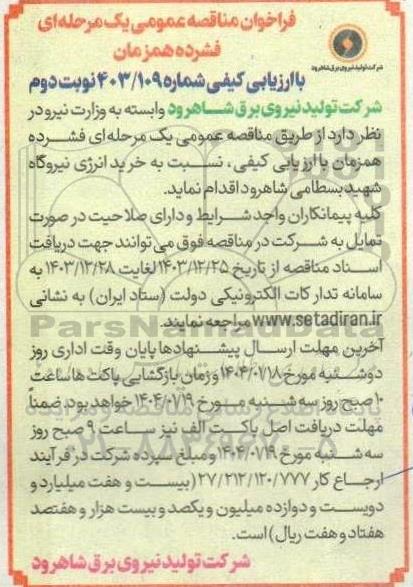 فراخوان مناقصه عمومی یک مرحله ای
فشرده همزمان
شرکت تولید نیروی برق شاهرود
با ارزیابی کیفی شماره ۴۰۳/۱۰۹ نوبت دوم
شرکت تولید نیروی برق شاهرود وابسته به وزارت نیرو در
نظر دارد از طریق مناقصه عمومی یک مرحله ای فشرده
همزمان با ارزیابی کیفی، نسبت به خرید انرژی نیروگاه
شهید بسطامی شاهرود اقدام نماید.
کلیه پیمانکاران واجد شرایط و دارای صلاحیت در صورت
تمایل به شرکت در مناقصه فوق می توانند جهت دریافت
اسناد مناقصه از تاریخ ۱۴۰۳/۱۲/۲۵ لغایت ۱۴۰۳/۱۲/۲۸ به
سامانه تدارکات الکترونیکی دولت (ستاد ایران) به نشانی
www.setadiran.ir مراجعه نمایند.
آخرین مهلت ارسال پیشنهادها پایان وقت اداری روز
دوشنبه مورخ ۱۴۰۴/۰۱/۱۸ و زمان بازگشایی پاکت ها ساعت
۱۰ صبح روز سه شنبه مورخ ۱۴۰۴/۰۱/۱۹ خواهد بود. ضمناً
مهلت دریافت اصل پاکت الف نیز ساعت ۹ صبح روز
سه شنبه مورخ ۱۴۰۴/۰۱/۱۹ و مبلغ سپرده شرکت در فرآیند
ارجاع کار ۲۷/۲۱۲/۱۲۰/۷۷۷ (بیست و هفت میلیارد و
دویست و دوازده میلیون و یکصد و بیست هزار و هفتصد
هفتاد و هفت ریال) است.
شرکت تولید نیروی برق شاهرود
ParsNamadData
۰۲۱-۸۸۳۴۹۶۷۰-۵